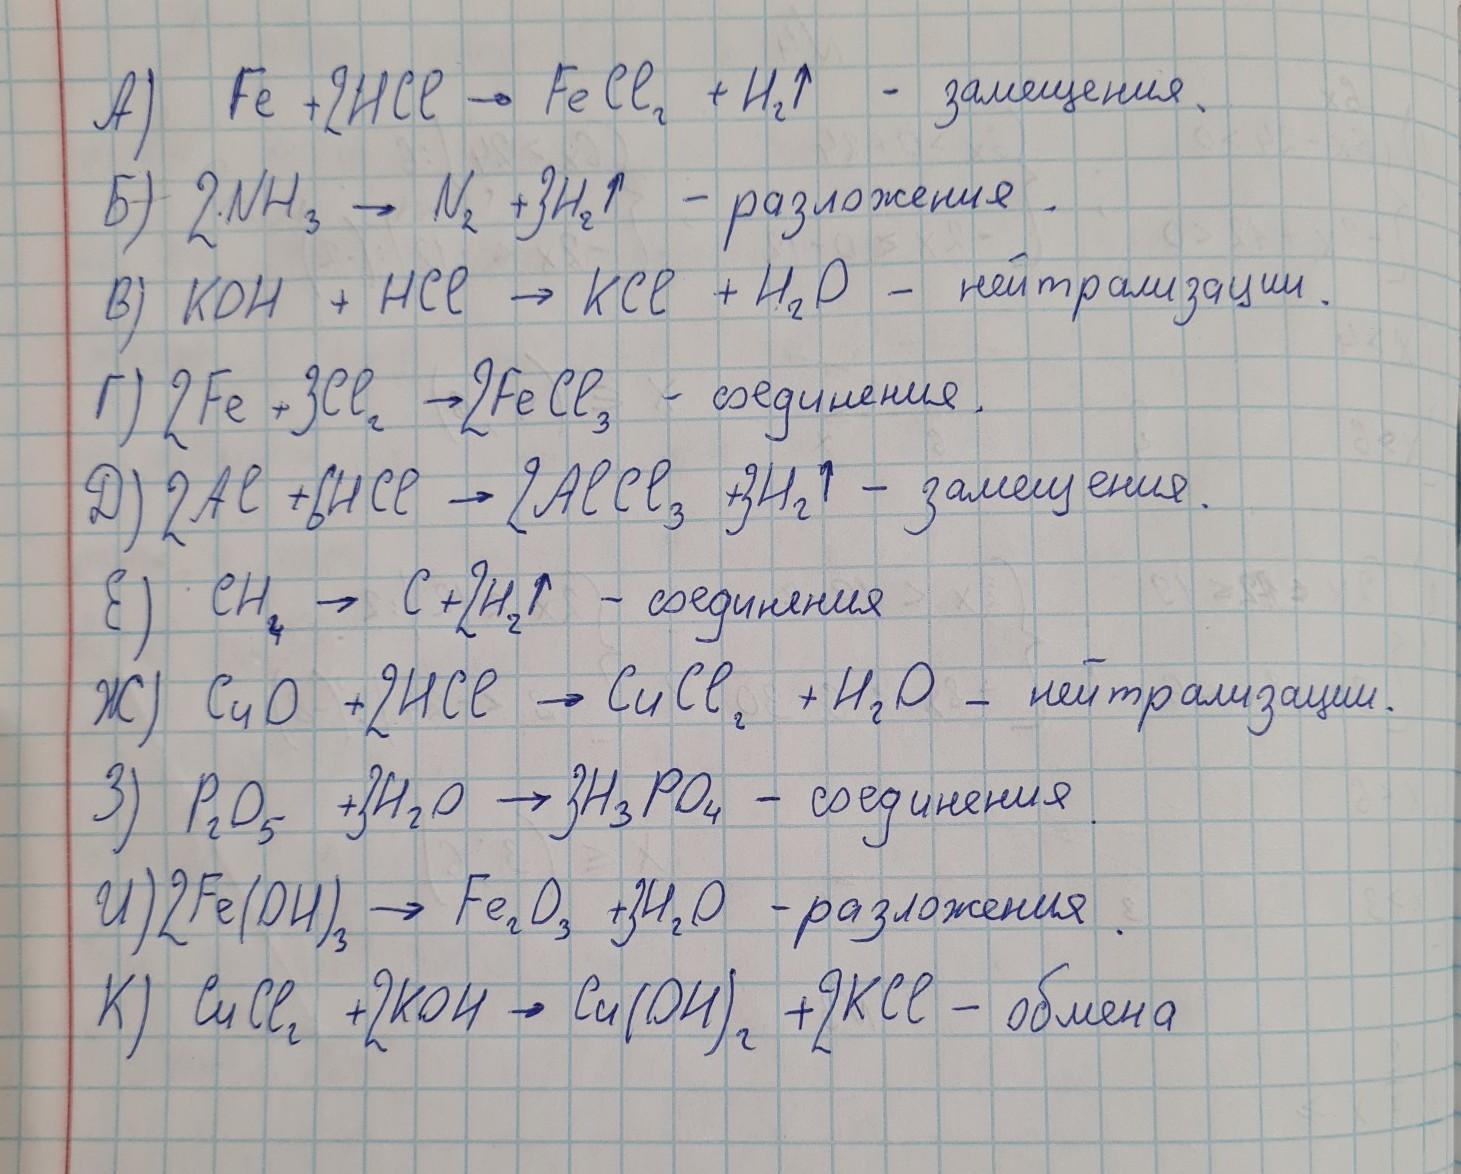 А) Fe + 2HCl → FeCl₂ + H₂↑ - замещения.
Б) 2NH₃ → N₂ + 3H₂↑ - разложения.
В) KOH + HCl → KCl + H₂O - нейтрализации.
Г) 2Fe + 3Cl₂ → 2FeCl₃ - соединения.
Д) 2Al + 6HCl → 2AlCl₃ + 3H₂↑ - замещения.
Е) CH₄ → C + 2H₂↑ - соединения
Ж) CuO + 2HCl → CuCl₂ + H₂O - нейтрализации.
З) P₂O₅ + 3H₂O → 3H₃PO₄ - соединения.
И) 2Fe(OH)₃ → Fe₂O₃ + 3H₂O - разложения.
К) CuCl₂ + 2KOH → Cu(OH)₂ + 2KCl - обмена